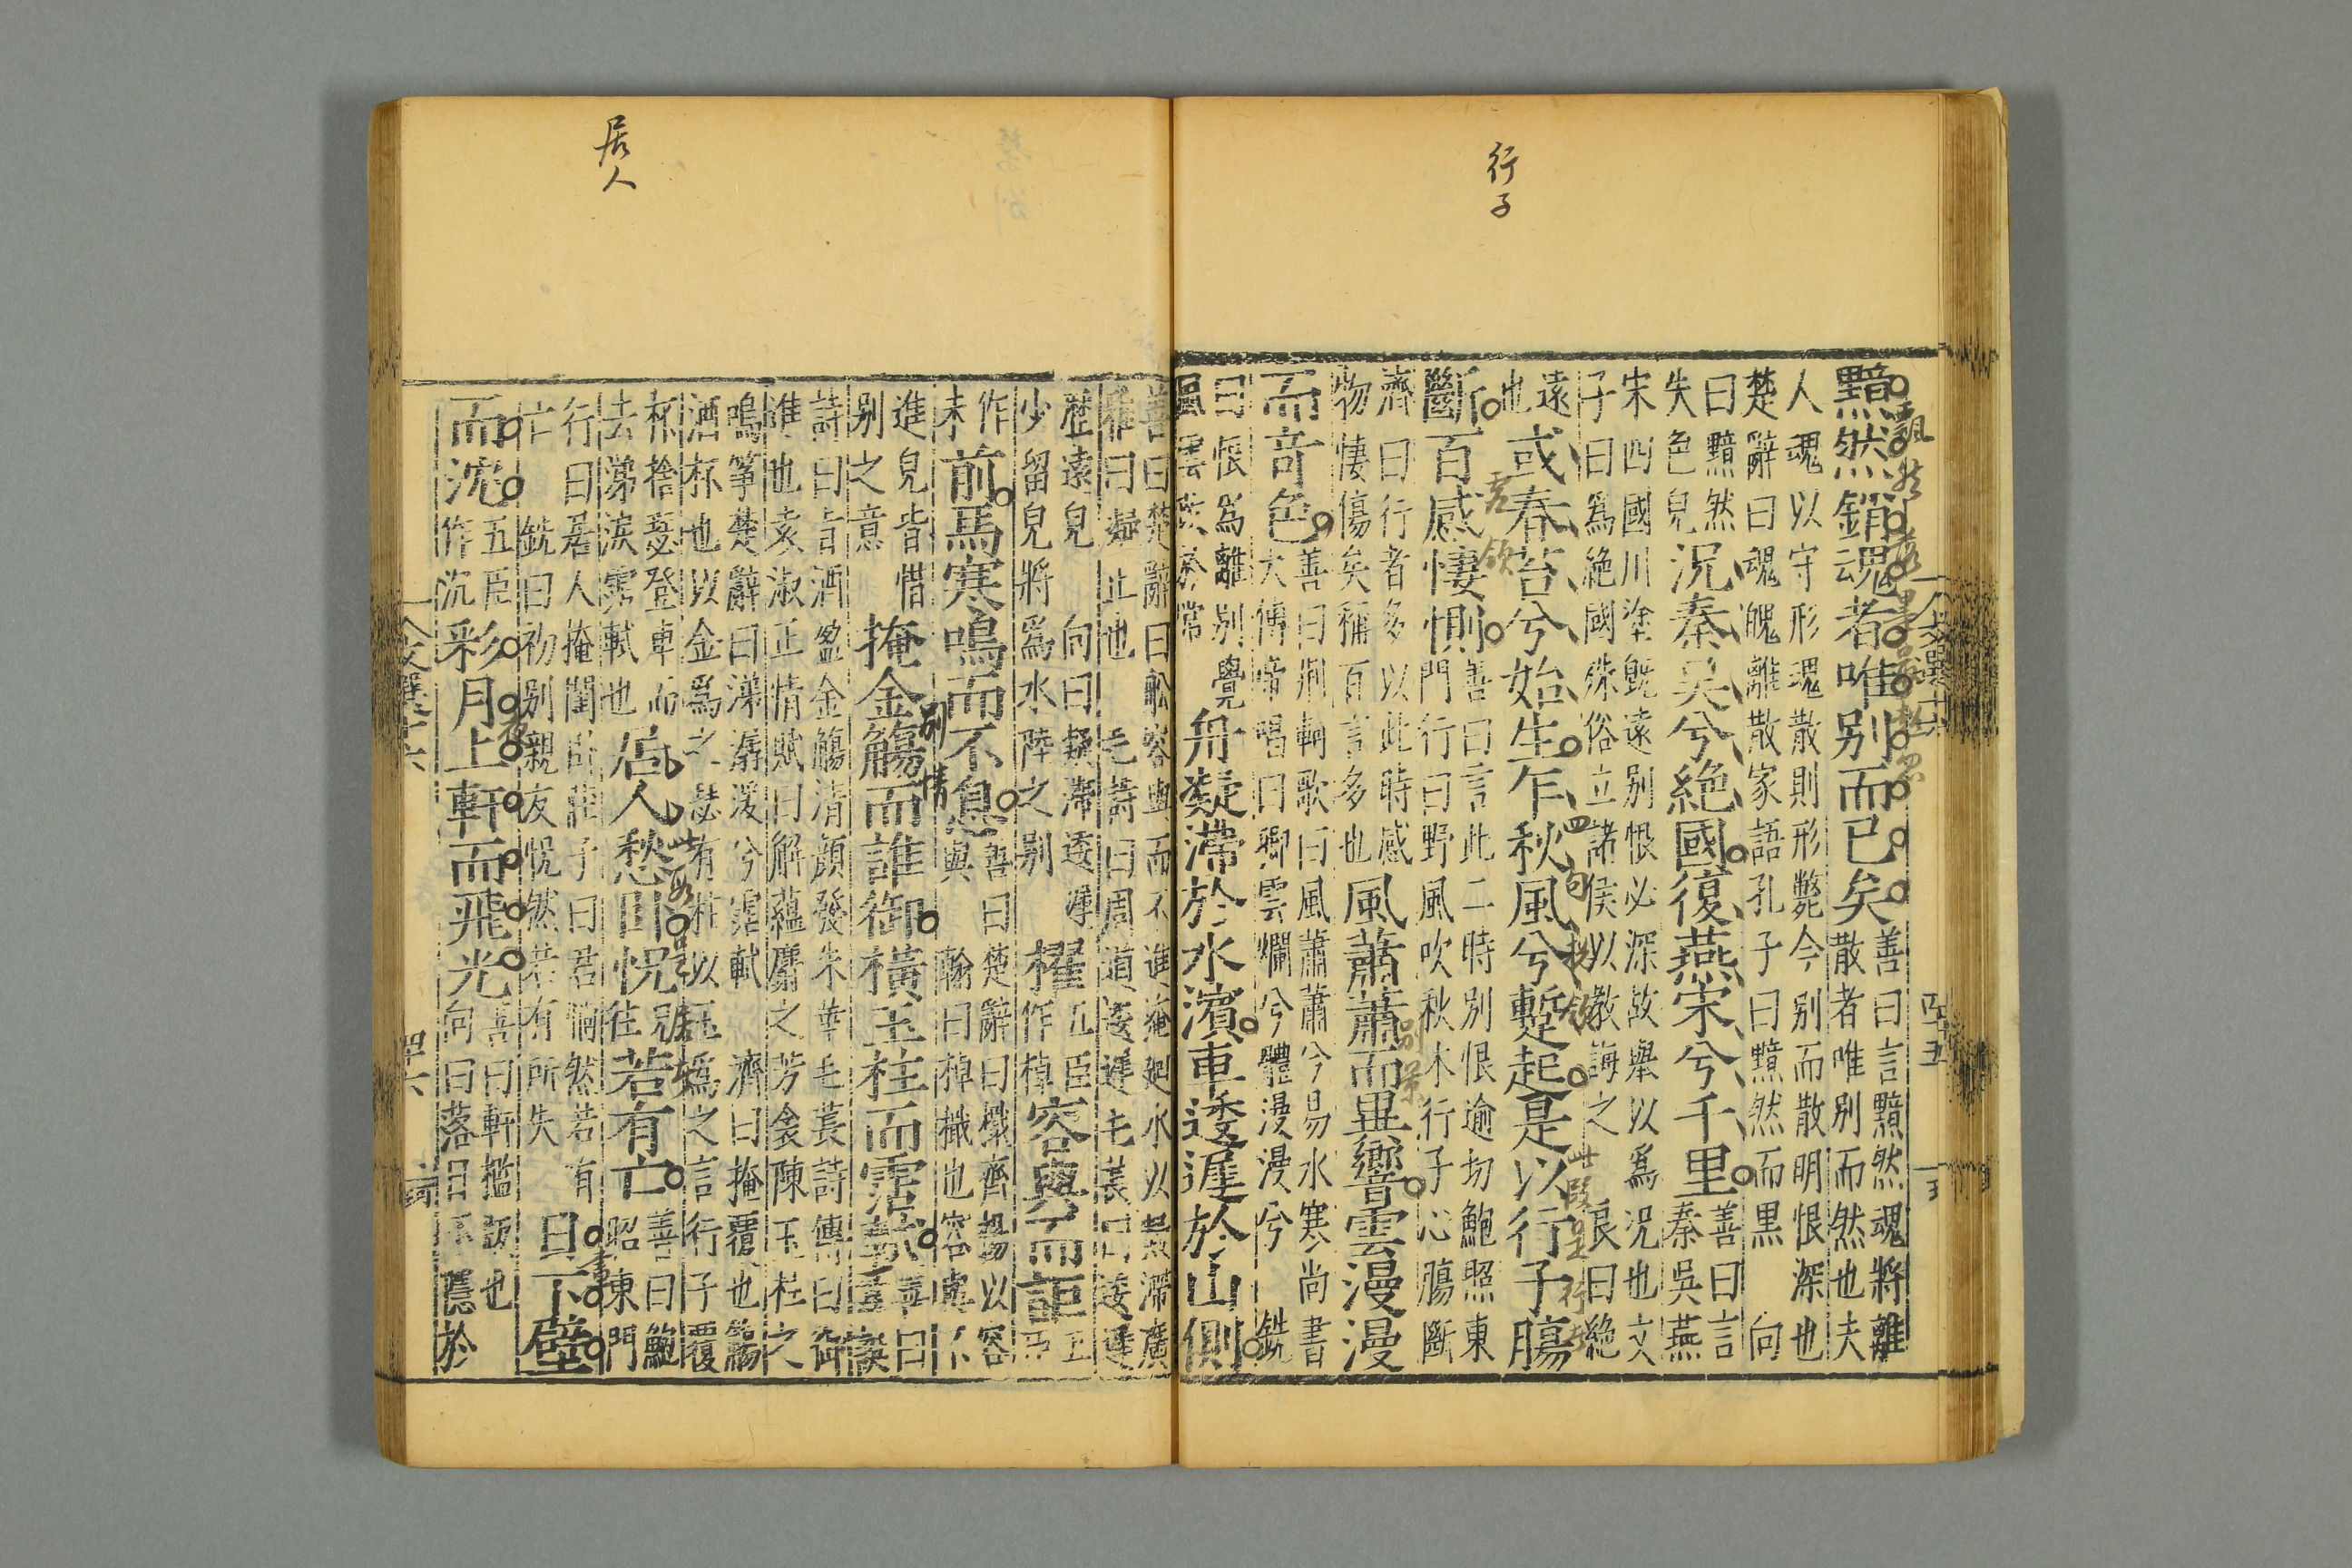 行子
黯然銷魂者唯别而已矣善曰言黯然魂將離
散者唯别而然也夫
人魂以守形魂散則形斃今别而散明恨深也
楚辭曰魂魄離散家語孔子曰黯然而黑 向
曰黯然
失色皃况秦吳兮絶國復燕宋兮千里善曰言
秦吳燕
宋四國川塗旣遠别恨必深故舉以爲况也文
子曰爲絶國殊俗立諸侯以教誨之 良曰絶
遠
也或春苔兮始生乍秋風兮蹔起是以行子腸
斷百感悽惻善曰言此二時别恨逾切鮑照東
門行曰野風吹秋木行子心腸斷
濟曰行者多以此時感
物悽傷矣稱百言多也風蕭蕭而異響雲漫漫
而竒色善曰荆軻歌曰風蕭蕭兮易水寒尚書
大傳帝唱曰卿雲爛兮禮漫漫兮 銑
曰恨爲離别覺
風雲異於常舟凝滯於水濱車逶遲於山側
居人
善曰楚辭曰船容與而不進淹廻水以凝滯廣
雅曰凝止也 毛詩曰周道逶遲毛萇曰逶遲
歴遠皃 向曰凝滯逶遲
少留皃將爲水陸之别 櫂五臣
作棹容與而詎五臣
作
未前馬寒鳴而不息善曰楚辭曰檝齊揚以容
與 翰曰棹檝也容與不
進皃皆惜
别之意 掩金觴而誰御橫玉柱而霑軾
詩曰旨酒盈金觴清顔發朱華毛萇詩傳曰御
進也袁淑正情賦曰解蘊麝之芳衾陳玉柱之
鳴箏楚辭曰涕潺湲兮霑軾 濟曰掩覆也觴
酒杯也以金爲之 瑟有柱以玉爲之言行子覆
杯捨瑟登車而
去涕淚霑軾也居人愁卧怳若有亡善曰鮑
昭東門
行曰居人掩閨卧莊子曰君惝然若有
亡 銑曰初别親友怳然若有所失 日下壁
而沈五臣
作沉彩月上軒而飛光善曰軒檻版也
向曰落日系隱於